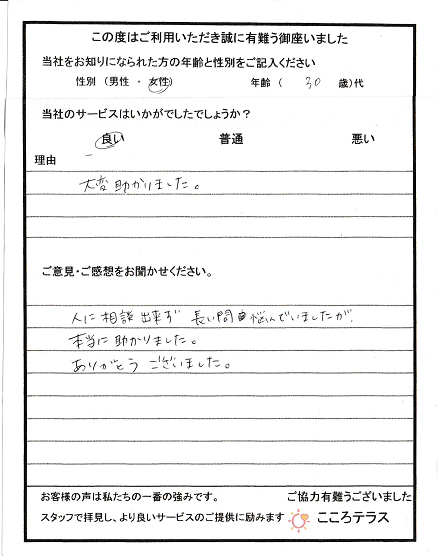 この度はご利用いただき誠に有難う御座いました
当社をお知りになられた方の年齢と性別をご記入ください
性別 (男性 ・ 女性) 年齢 ( 30 歳)代
当社のサービスはいかがでしたでしょうか?
良い 普通 悪い
理由
大変助かりました。
ご意見・ご感想をお聞かせください。
人に相談出来ず 長い間悩んでいましたが、
本当に助かりました。
ありがとうございました。
お客様の声は私たちの一番の強みです。 ご協力有難うございました
スタッフで拝見し、より良いサービスのご提供に励みます こころテラス